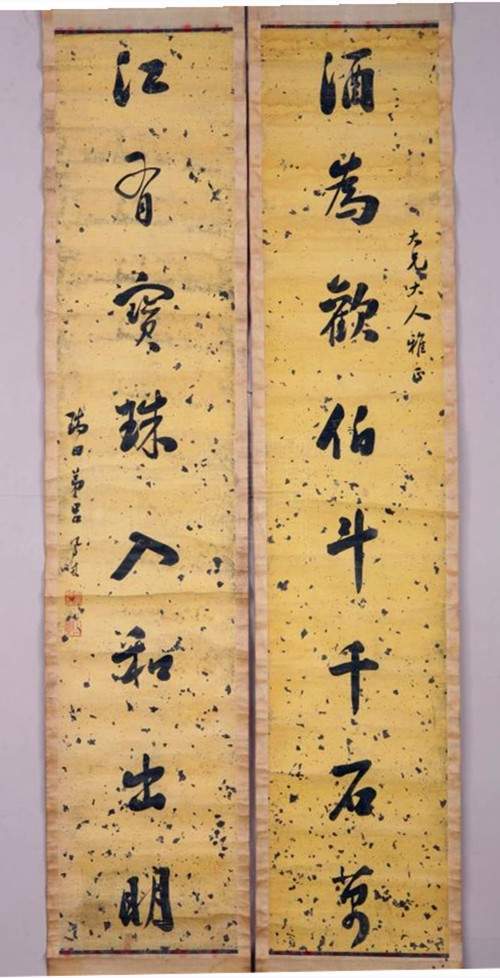 大兄大人雅正
酒為歡伯斗千石萬
江有寶珠入和出明
瑞田弟呂鳳岐